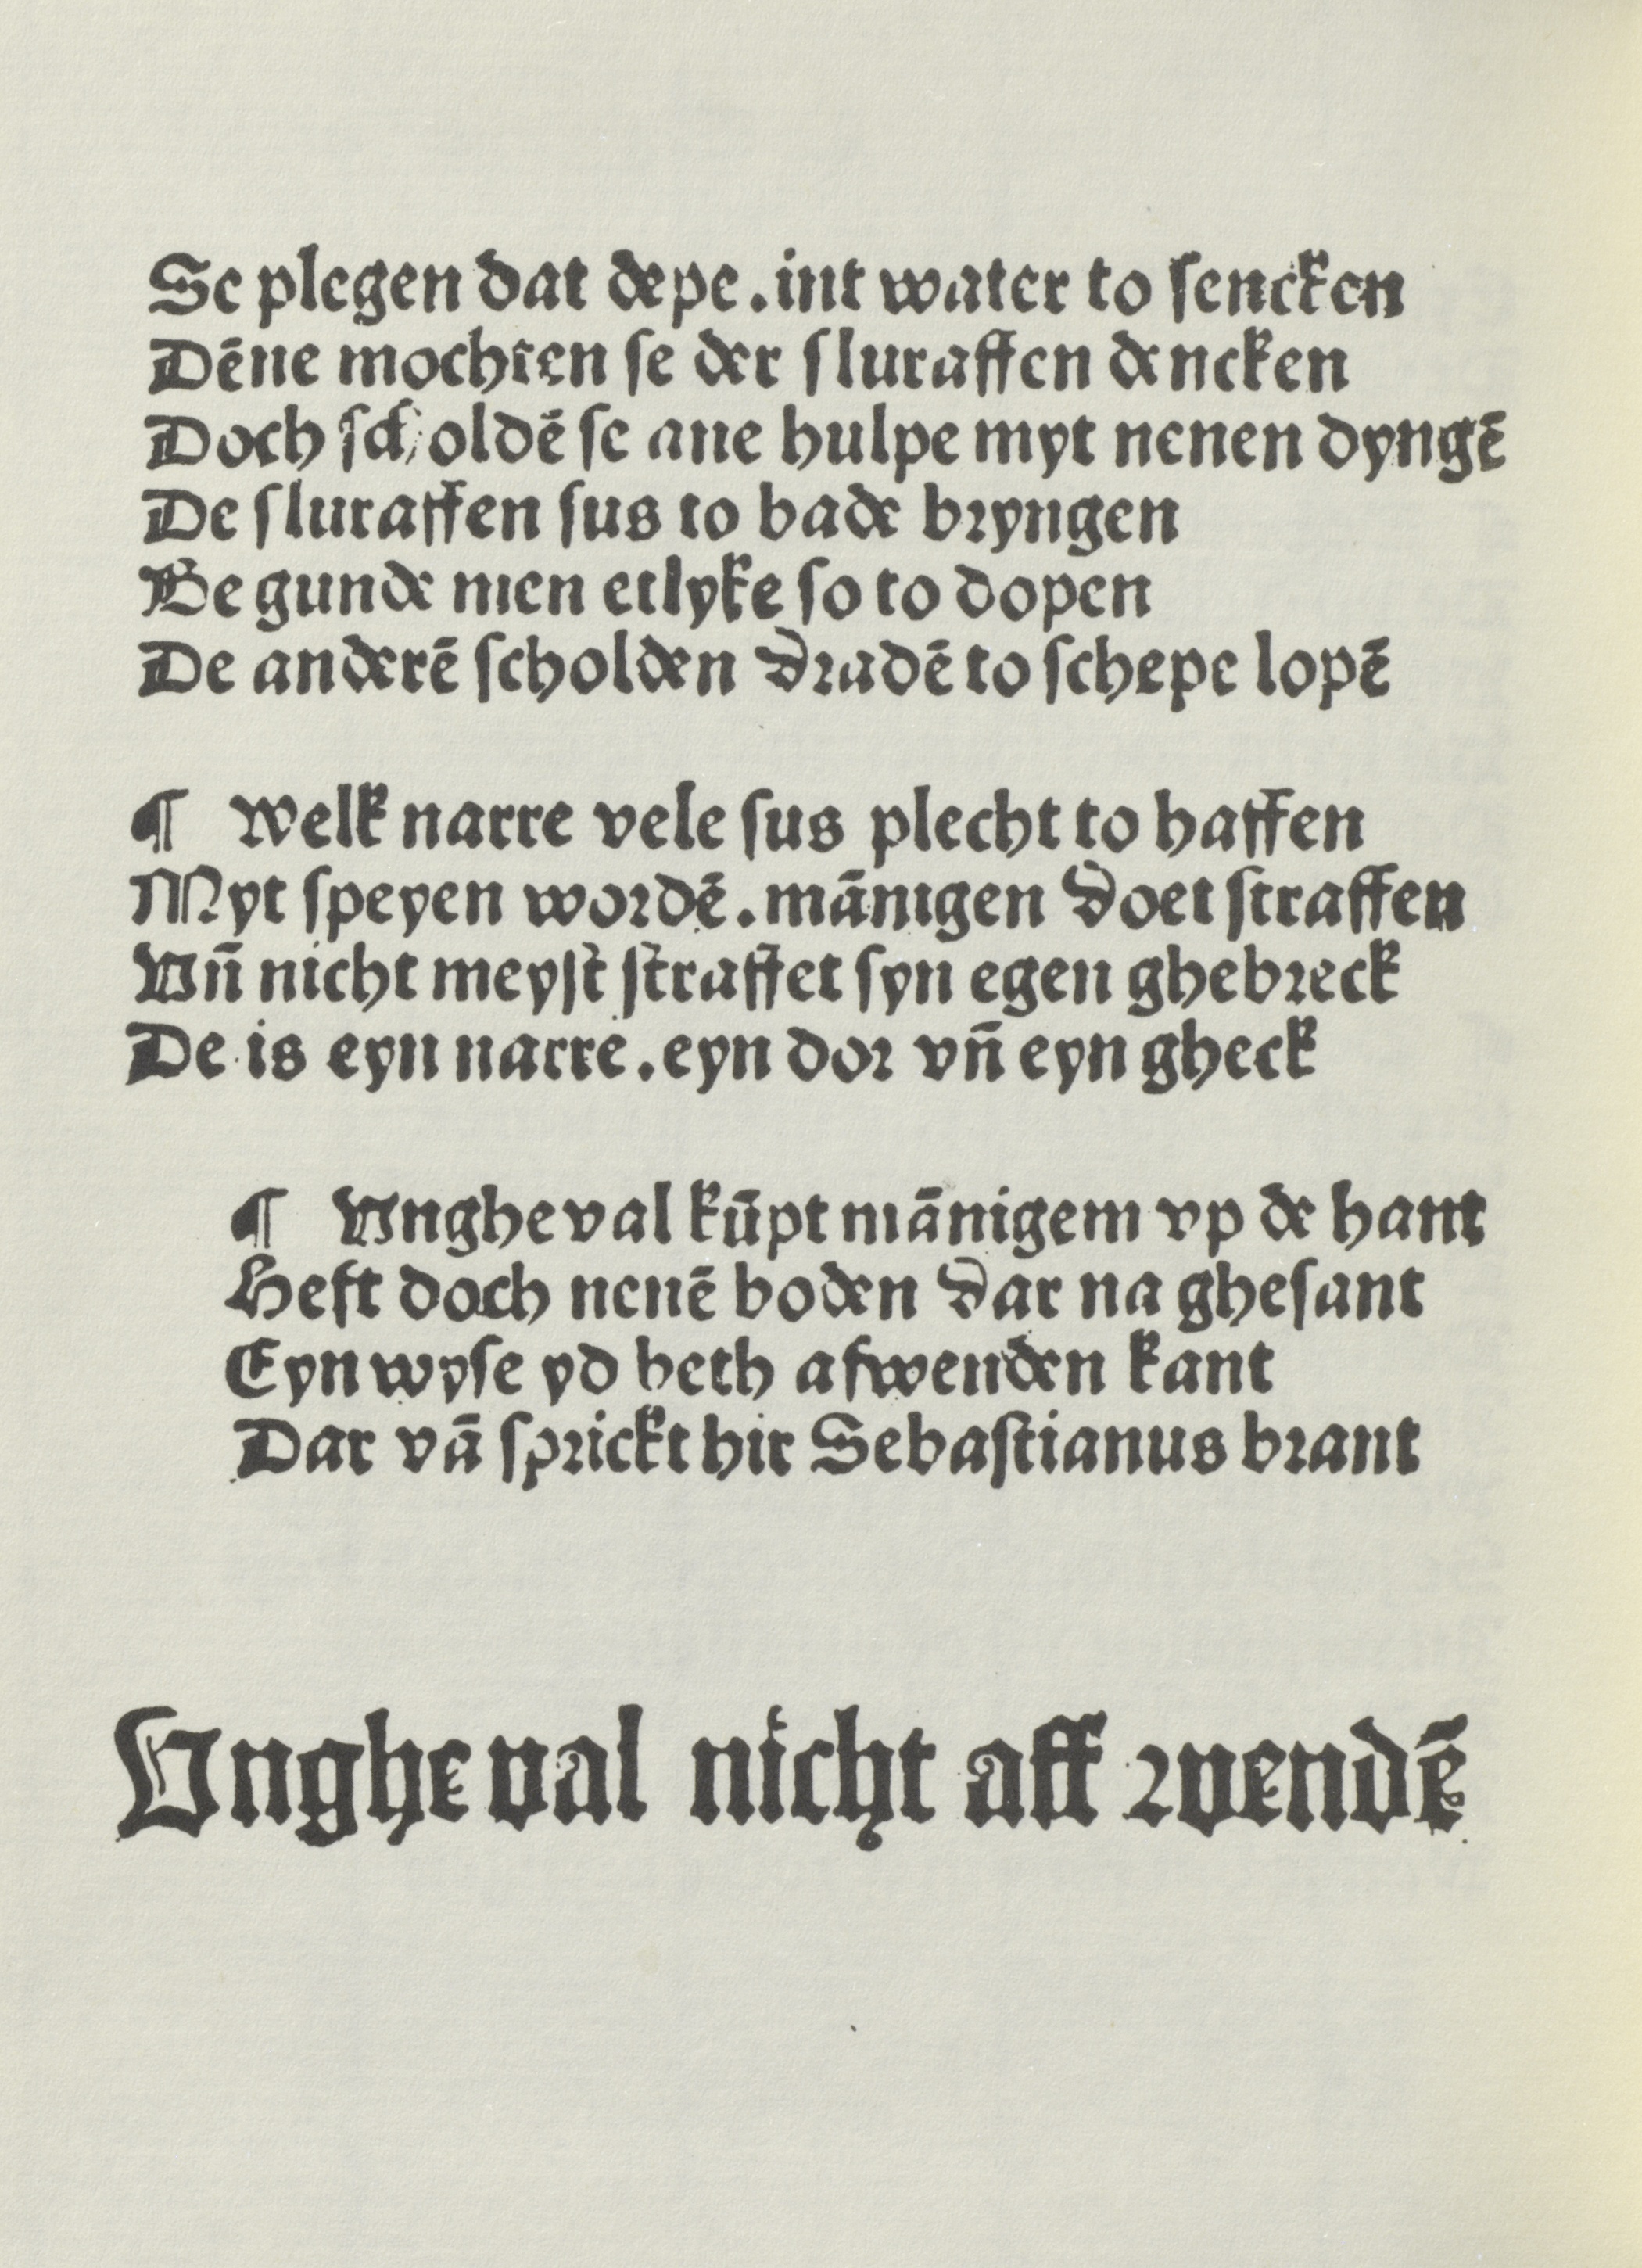 Se plegen dat depe.int water to ſencken
Dēne mochten ſe der ſluraffen dencken
Doch ſcholdē ſe ane hulpe myt nenen dyngē
De ſluraffen ſus to bade bryngen
Be gunde men etlyke ſo to dopen
De anderē ſcholden dradē to ſchepe lopē
¶ Welk narre vele ſus plecht to haffen
Myt ſpeyen wordē.mānigen doet ſtraffen
Vn̄ nicht meyſt ſtraffet ſyn egen ghebreck
De is eyn narre.eyn dor vn̄ eyn gheck
¶ Vngheval kūpt mānigem vp de hant
Heft doch nenē boden dar na gheſant
Eyn wyſe yd beth afwenden kant
Dar vā ſprickt hir Sebaſtianus brant
Vngheval nicht aff wendē